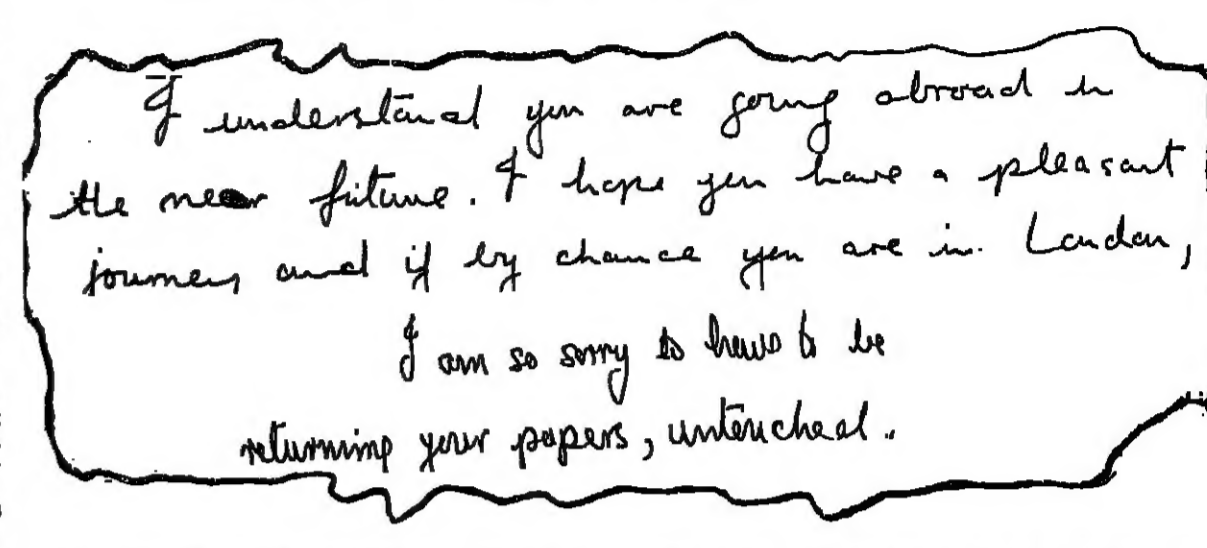 I understand you are going abroad in
the near future. I hope you have a pleasant
journey and if by chance you are in London,
I am so sorry to have to be
returning your papers, untouched.